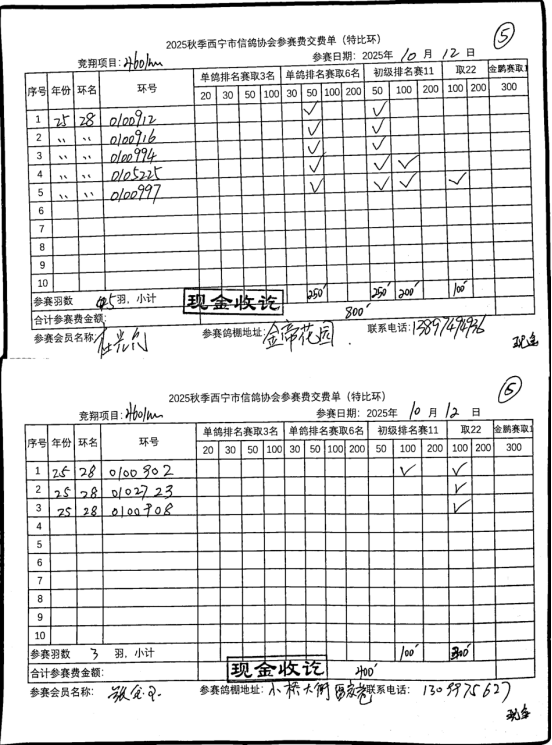 ⑤
2025秋季西宁市信鸽协会参赛费交费单（特比环）
竞翔项目：460km 参赛日期：2025年 10 月 12 日
序号 年份 环名 环号 单鸽排名赛取3名 单鸽排名赛取6名 初级排名赛11 取22 金鹏赛取1
20 30 50 100 30 50 100 200 50 100 200 100 200 300
1 25 28 0100912 ✓ ✓
2 〃 〃 0100916 ✓ ✓
3 〃 〃 0100994 ✓ ✓
4 〃 〃 0105225 ✓ ✓ ✓
5 〃 〃 0100997 ✓ ✓ ✓ ✓
6
7
8
9
10
参赛羽数 5 羽，小计 250 250 200 100
现金收讫
合计参赛费金额： 800
参赛会员名称： 参赛鸽棚地址：金帝花园 联系电话：13897494936
现金
⑤
2025秋季西宁市信鸽协会参赛费交费单（特比环）
竞翔项目：460km 参赛日期：2025年 10 月 12 日
序号 年份 环名 环号 单鸽排名赛取3名 单鸽排名赛取6名 初级排名赛11 取22 金鹏赛取1
20 30 50 100 30 50 100 200 50 100 200 100 200 300
1 25 28 0100902 ✓ ✓
2 25 28 0102723 ✓
3 25 28 0100908 ✓
4
5
6
7
8
9
10
参赛羽数 3 羽，小计 100 300
现金收讫
合计参赛费金额： 400
参赛会员名称： 参赛鸽棚地址：小桥大街 联系电话：1309975627
现金